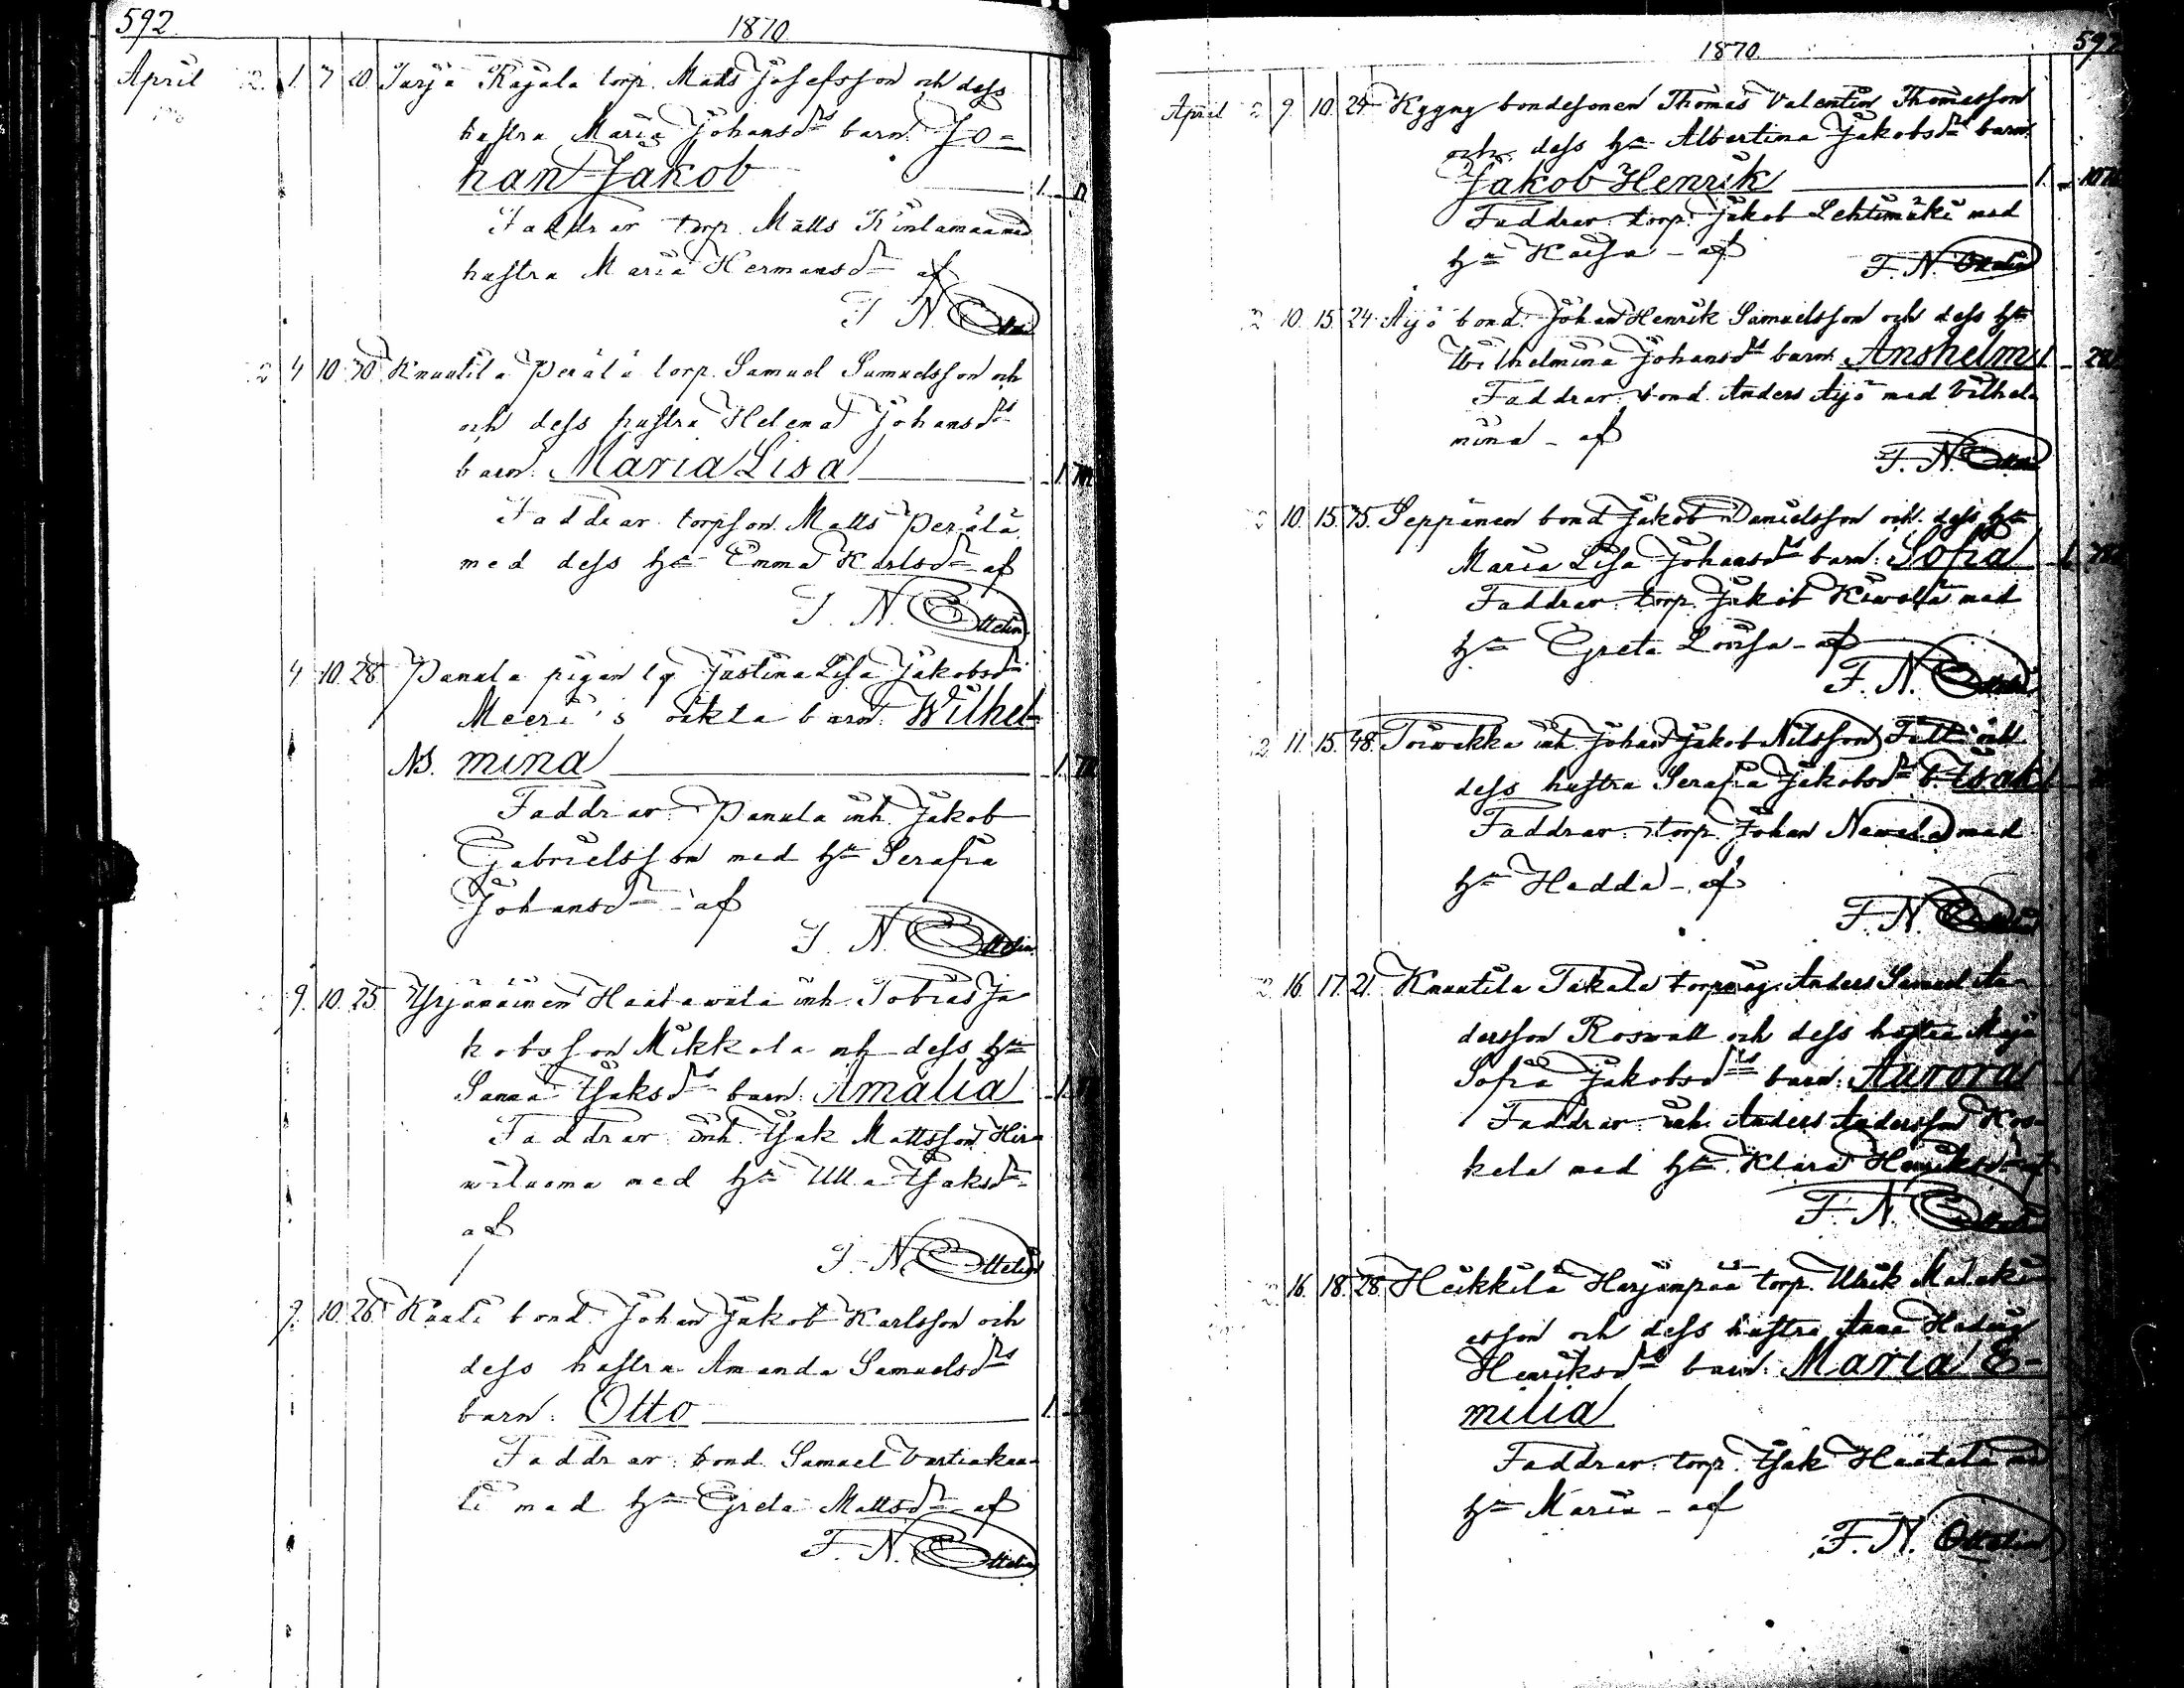 592
1870
April 2. 1. 7 20 Turja Rajala torp. Matts Josefsson och dess
hustru Maria Johansdrs barn: Jo=
han Jakob 1.
Faddrar torp. Matts Kintamaa med
hustru Maria Hermansdr af
F. N. Ottelin
2 4 10 30 Knuutila Perälä torp. Samuel Samuelsson och
och dess hustru Helena Johansdrs
barn: Maria Lisa 1.
Faddrar torpson Matts Perälä
med dess hu Emma Karlsdr af
F. N. Ottelin
4 10. 28 Panula pigan lg Justina Lisa Jakobsdr
Meeri's oäkta barn: Wilhel=
NB. mina 1.
Faddrar: Panula inh. Jakob
Gabrielsson med hu Serafia
Johansdr - af
F. N. Ottelin
9. 10. 25 Yrjänäinen Haatawala inh. Tobias Ja
kobsson Mikkola och dess hu
Sanna Isaksdrs barn: Amalia 1.
Faddrar inh. Isak Mattsson Hir=
wiluoma med hu Ulla Isaksdr
af
F. N. Ottelin
9. 10. 26 Kaali bond. Johan Jakob Karlsson och
dess hustru Amanda Samuelsdrs
barn: Otto 1.
Faddrar: bond. Samuel Vartiakaa=
li med hu Greta Mattsdr af
F. N. Ottelin
1870.
592
April 2 9. 10. 24 Kyyny bondesonen Thomas Valentin Thomasson
och dess hu Albertina Jakobsdrs barn:
Jakob Henrik 1.
Faddrar torp. Jakob Lehtimäki med
hu Kaisa - af
F. N. Ottelin
2 10. 15. 24 Äijö bond. Johan Henrik Samuelsson och dess hu
Wilhelmina Johansdrs barn: Anshelm 1.
Faddrar: bond. Anders Äijö med Vilhel=
mina - af
F. N. Ottelin
2 10. 15. 75. Seppänen bond Jakob Danielsson och dess hu
Maria Lisa Johansdrs barn: Sofia
Faddrar: torp. Jakob Kiwelä med
hu Greta Lovisa - af
F. N. Ottelin
2 11. 15. 48. Toiwakka inh. Johan Jakob Nilsson och
dess hustru Serafia Jakobsdrs b. Isak
Faddrar: torp. Johan Newala med
hu Hedda - af
F. N. Ottelin
2 16. 17. 21. Knuutila Takala torpmåg. Anders Samuel An=
dersson Roswall och dess hustru Maja
Sofia Jakobsdrs barn: Aurora
Faddrar: inh. Anders Andersson Kos=
kela med hu Klara Henriksdr af
F. N. Ottelin
2 16. 18. 28 Heikkilä Harjunpää torp. Ulrik Malaki=
asson och dess hustru Anna Hedvig
Henriksdrs barn: Maria E=
milia
Faddrar: torp. Isak Haatala med
hu Maria - af
F. N. Ottelin